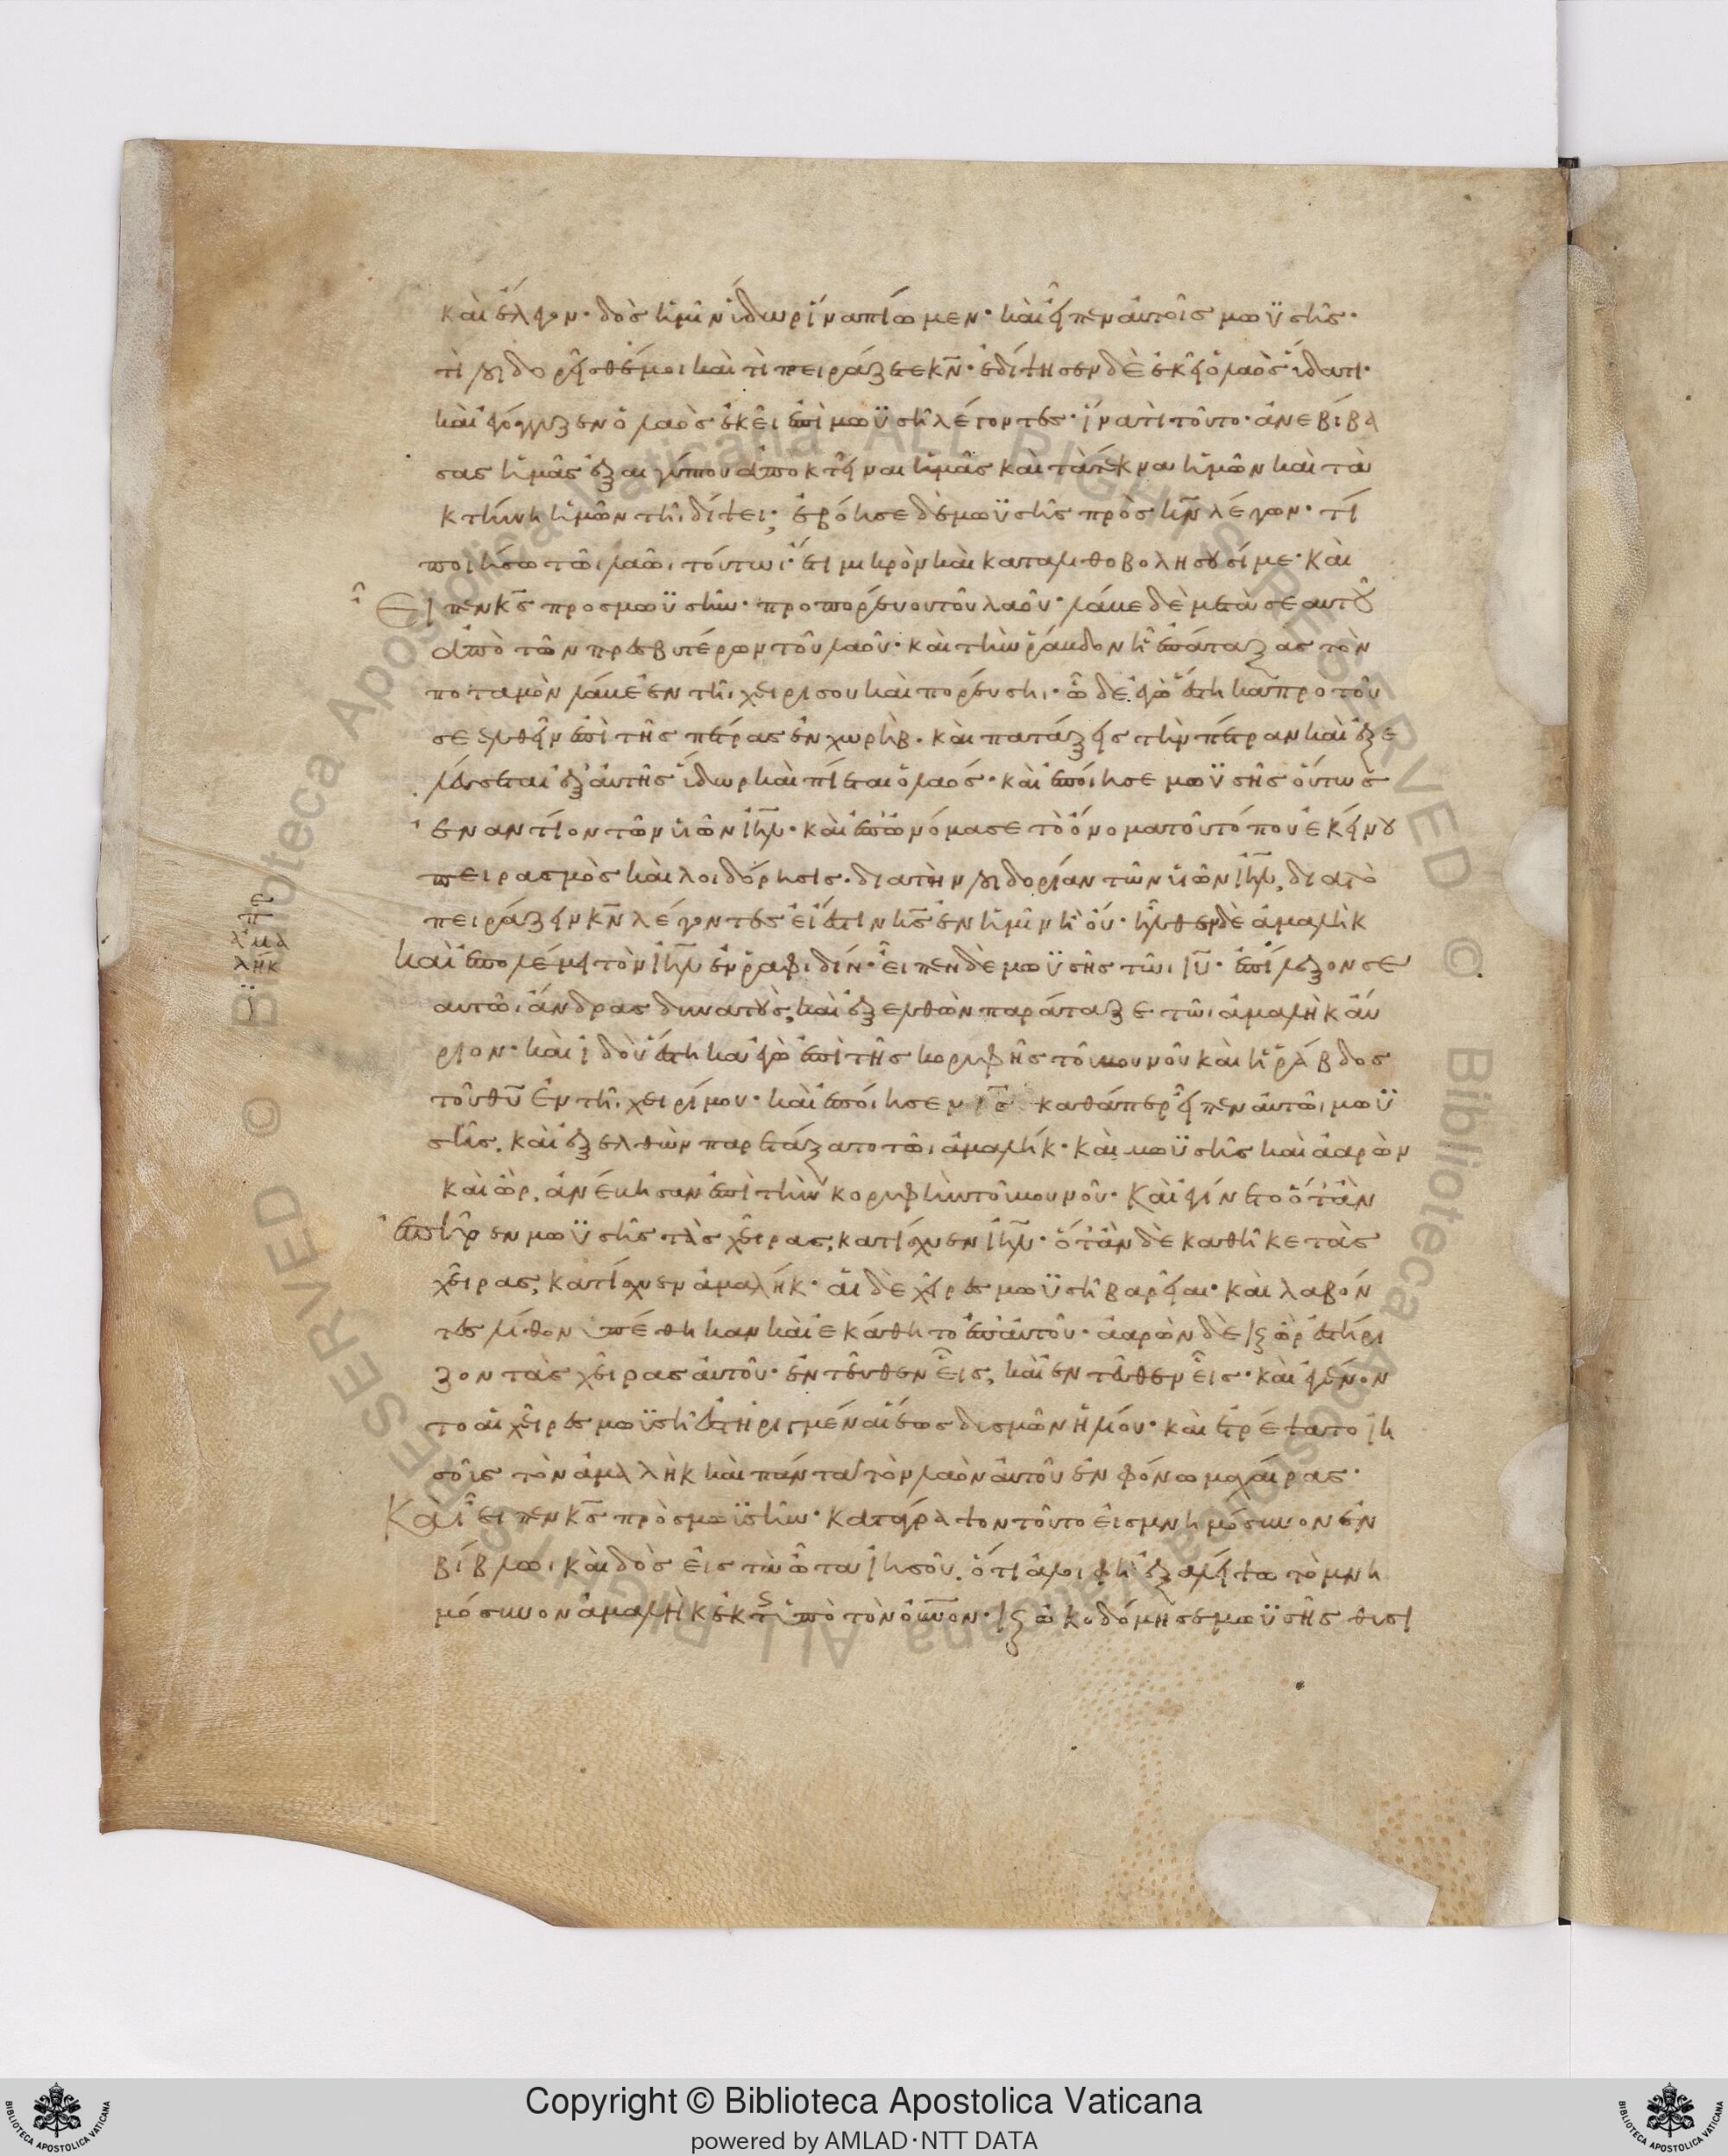 καὶ ἔλεγον· δὸς ἡμῖν ὕδωρ ἵνα πίωμεν· καὶ εἶπεν αὐτοῖς μωϋσῆς·
τί λοιδορεῖσθέ μοι καὶ τί πειράζετε κ̅ν̅· ἐδίψησεν δὲ ἐκεῖ ὁ λαὸς ὕδατι·
καὶ ἐγόγγυζεν ὁ λαὸς ἐκεῖ ἐπὶ μωϋσῆ λέγοντες· ἵνα τί τοῦτο· ἀνεβίβα
σας ἡμᾶς ἐξ αἰγύπτου ἀποκτεῖναι ἡμᾶς καὶ τὰ τέκνα ἡμῶν καὶ τὰ
κτήνη ἡμῶν τῆι δίψει; ἐβόησε δὲ μωϋσῆς πρὸς κ̅ν̅ λέγων· τί
ποιήσω τῶι λαῶι τούτωι· ἔτι μικρὸν καὶ καταλιθοβολήσουσί με· καὶ
εἶπεν κ̅ς̅ προς μωϋσῆν· προπορεύου τοῦ λαοῦ· λάβε δὲ μετὰ σεαυτοῦ
ἀπὸ τῶν πρεσβυτέρων τοῦ λαοῦ· καὶ τὴν ῥάβδον ἧ ἐπάταξας τὸν
ποταμὸν λάβε ἐν τῆι χειρί σου καὶ πορεύσηι· ὧδε ἐγὼ ἕστηκα προ τοῦ
σε ἐλθεῖν ἐπὶ τῆς πέτρας ἐν χωρήβ· καὶ πατάξεις τὴν πέτραν καὶ ἐξε
λεύσεται ἐξ αὐτῆς ὕδωρ καὶ πίεται ὁ λαός· καὶ ἐποίησε μωϋσῆς οὕτως
ἐναντίον τῶν υἱῶν ι̅η̅λ̅· καὶ ἐπωνόμασε τὸ ὄνομα τοῦ τόπου ἐκείνου
πειρασμὸς καὶ λοιδόρησις· διὰ τὴν λοιδορίαν τῶν υἱῶν ι̅η̅λ̅, διὰ τὸ
πειράζειν κ̅ν̅ λέγοντες εἰ ἔστιν κ̅ς̅ ἐν ἡμῖν ἢ οὔ· ἦλθεν δὲ ἀμαλὴκ
καὶ ἐπολέμει τὸν ι̅η̅λ̅ ἐν ῥαφιδίν· εἶπεν δὲ μωϋσῆς τῶι ι̅υ̅· ἐπίλεξον σε
αυτῶι ἄνδρας δυνατούς, καὶ ἐξελθὼν παράταξε τῶι ἀμαλὴκ αὔ
ριον· καὶ ἰδοὺ ἕστηκα ἐγὼ ἐπὶ τῆς κορυφῆς τοῦ βουνοῦ καὶ ἡ ῥάβδος
τοῦ θ̅υ̅ ἐν τῆι χειρί μου· καὶ ἐποίησεν ι̅ς̅ καθάπερ εἶπεν αὐτῶι μωϋ
σῆς, καὶ ἐξελθὼν παρετάξατο τῶι ἀμαλήκ· καὶ μωϋσῆς καὶ ἀαρὼν
καὶ ὢρ, ἀνέβησαν ἐπὶ τὴν κορυφὴν τοῦ βουνοῦ· Καὶ ἐγίνετο ὅτὰν
ἐπῆρεν μωϋσῆς τὰς χεῖρας, κατίσχυεν ι̅η̅λ̅· ὅτὰν δὲ καθῆκε τὰς
χεῖρας, κατίσχυεν ἀμαλήκ· αἱ δὲ χεῖρες μωϋσῆ βαρεῖαι· καὶ λαβόν
τες λίθον ὑπέθηκαν καὶ ἐκάθητο ἐπ' αὐτοῦ· ἀαρὼν δὲ κ̣ ὢρ ἐστήρι
ζον τὰς χεῖρας αὐτοῦ· ἐντεῦθεν εἷς, καὶ ἐντεῦθεν εἷς· καὶ ἐγένον
το αἱ χεῖρες μωϋσῆ ἐστηριγμέναι ἕως δυσμῶν ἡλίου· καὶ ἐτρέψατο ἰη
σοῦς τὸν ἀμαλὴκ καὶ πάντα τὸν λαὸν αὐτοῦ ἐν φόνω μαχαίρας·
Καὶ εἶπεν κ̅ς̅ πρὸς μωϋσῆν· κατάγραψον τοῦτο εἰς μνημόσυνον ἐν
βίβλωι καὶ δὸς εἰς τὰ ὦτα ἰησοῦ. ὅτι ἀλοιφῆ ἐξαλείψω τὸ μνη
μόσυνον ἀμαλὴκ ἐκ τῆς ὑπὸ τὸν ο̅υ̅ν̅ο̅ν̅· κ̣ ὠκοδόμησε μωϋσῆς θυσι
ἀμα
λήκ